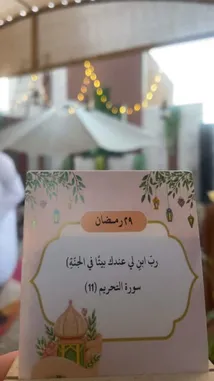 ٢٩ رمضان
ربّ ابنِ لي عندك بيتًا في الجنّةِ)
سورة التحريم (11)